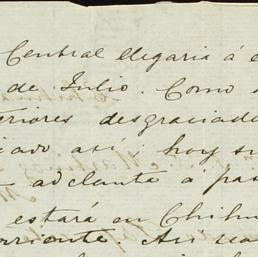 Central llegaria á e
de Julio. Como
eriores desgraciado
icado así; hoy su
adelanta á pas
estará en Chihu
orriente. Así